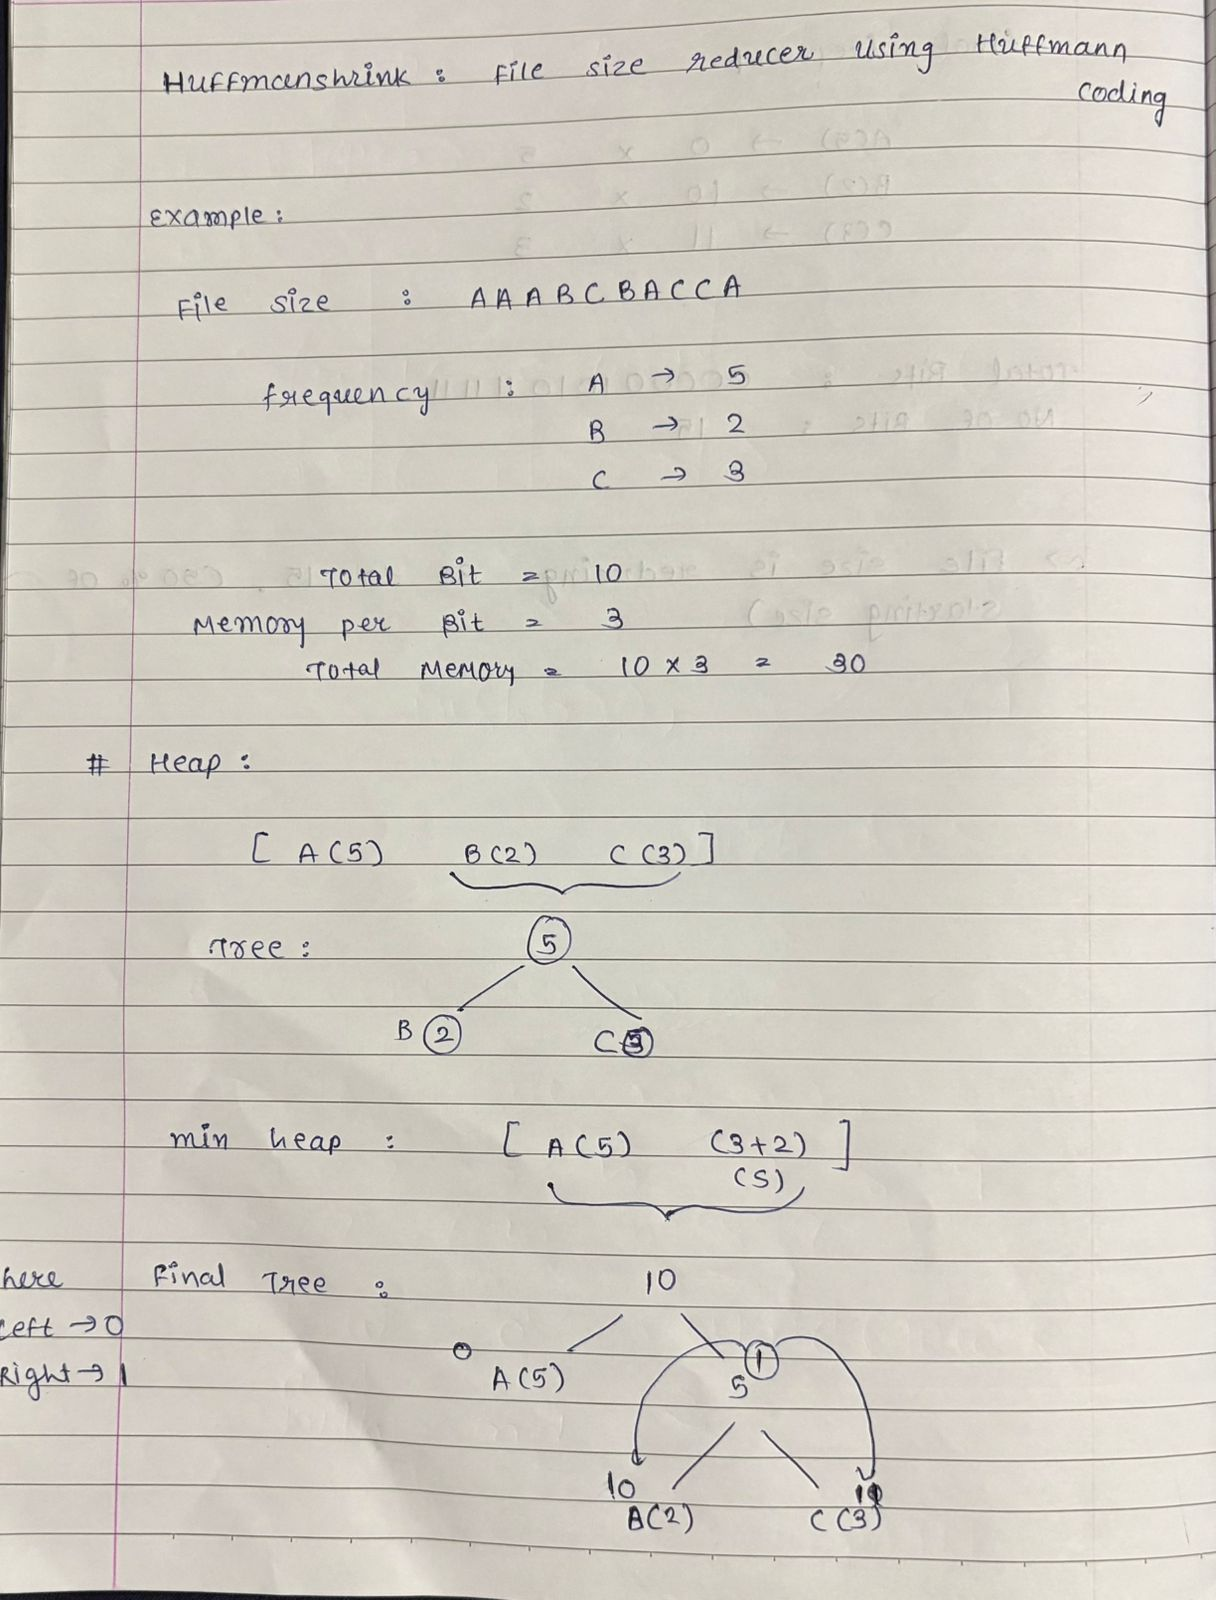 Huffmanshrink : File size reducer using Huffmann
coding
Example :
File size : AAABCBACCA
frequency : A → 5
B → 2
C → 3
Total Bit = 10
Memory per Bit = 3
Total Memory = 10 x 3 = 30
# Heap :
[ A(5) B(2) C(3) ]
Tree : 5
B 2 C 3
min heap : [ A(5) (3+2) ]
(5)
here Final Tree : 10
Left → 0
0 1
Right → 1 A(5) 5
10 11
B(2) C(3)